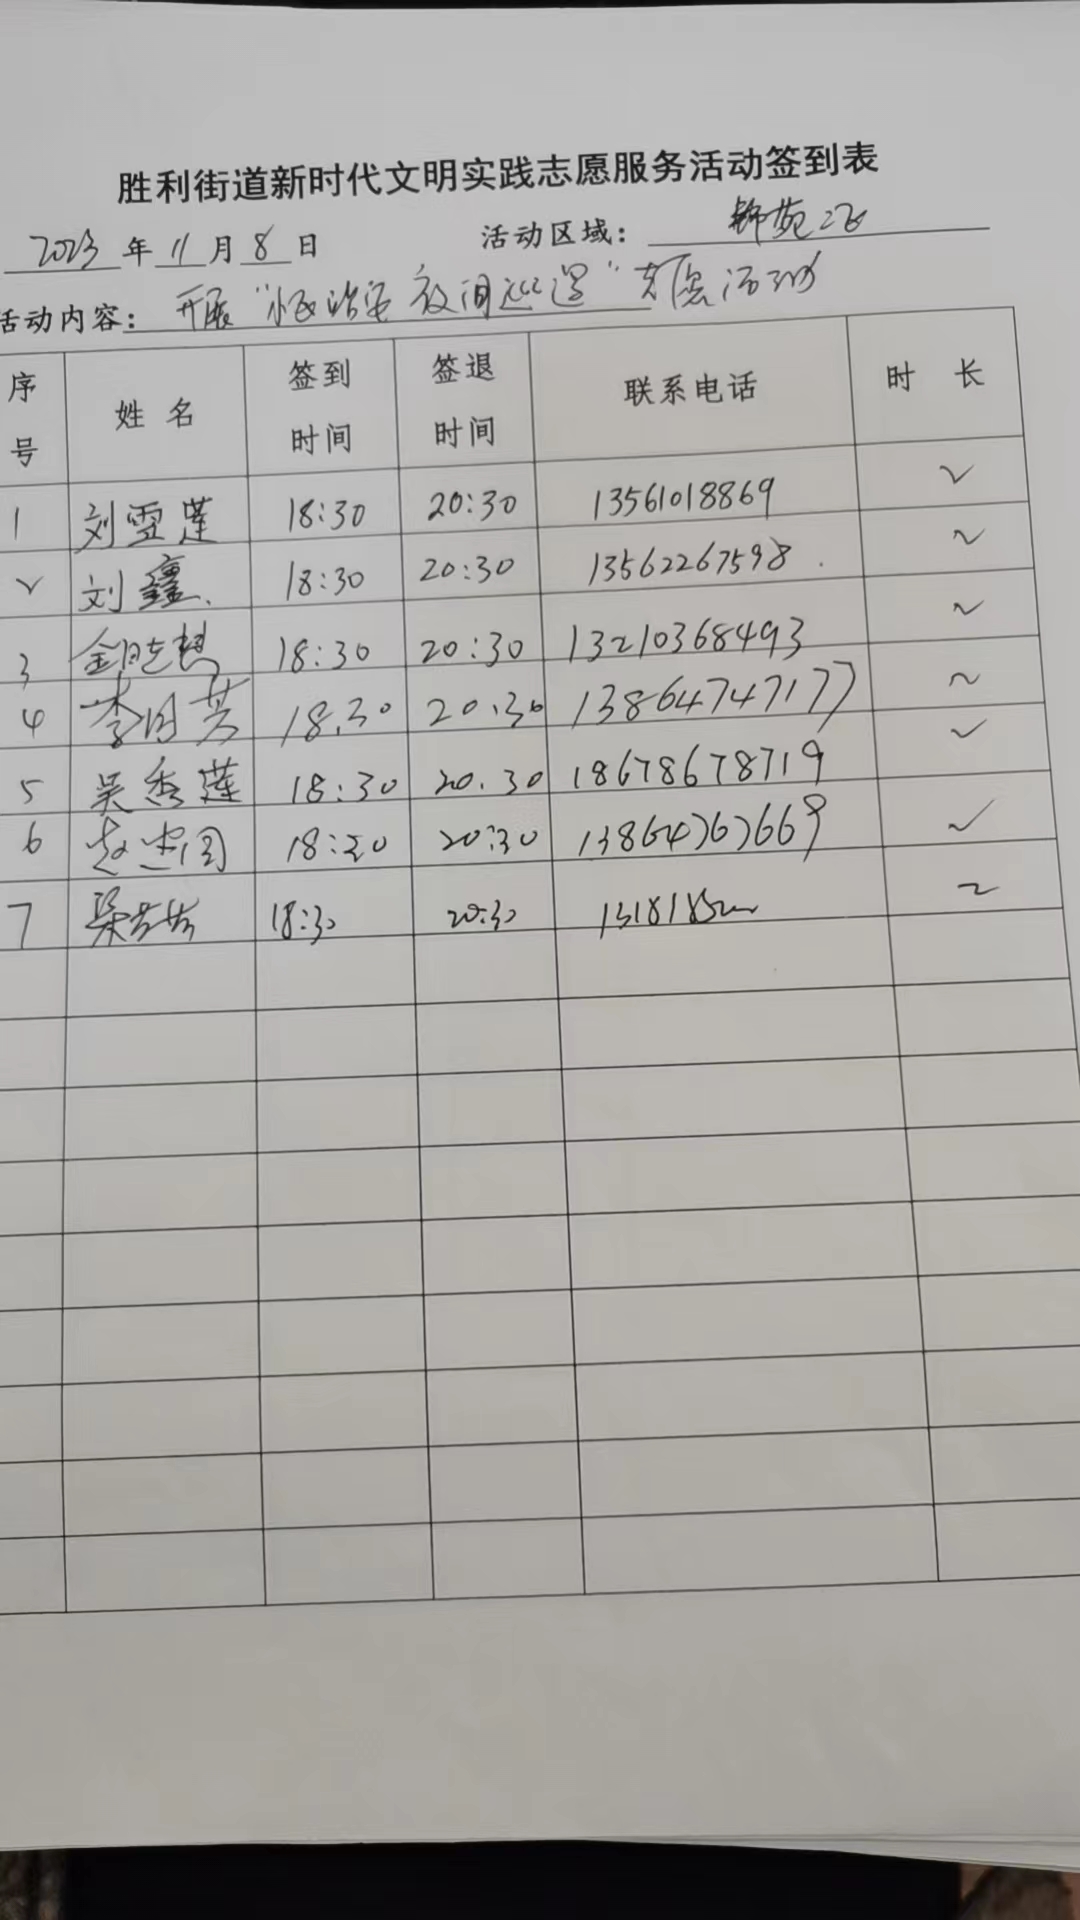 胜利街道新时代文明实践志愿服务活动签到表
2023 年 11 月 8 日 活动区域： 锦苑二
活动内容： 开展“ 治安 夜间巡逻”志愿活动
序号 姓名 签到时间 签退时间 联系电话 时 长
1 刘雪莲 18:30 20:30 13561018869 ✓
2 刘鑫 18:30 20:30 13562267598
3 18:30 20:30 13210368493
4 李月芳 18.30 20.30 13864747177
5 吴秀莲 18:30 20.30 18678678719 ✓
6 赵忠阁 18:30 20:30 ✓
7 梁芳芳 18:30 20:30